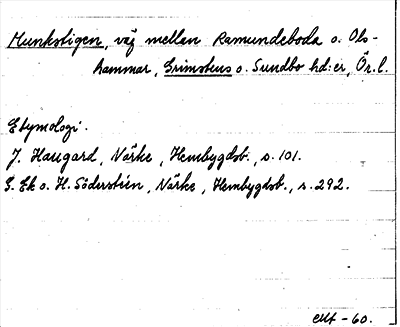 Munkstigen, väg mellan Ramundeboda o. Ols-
hammar, Grimstens o. Sundbo hd:er, Ör.l.
Etymologi.
J. Haugard, Närke, Hembygdsb., s. 101.
S. Ek o. H. Söderstéen, Närke, Hembygdsb., s. 292.
-60.